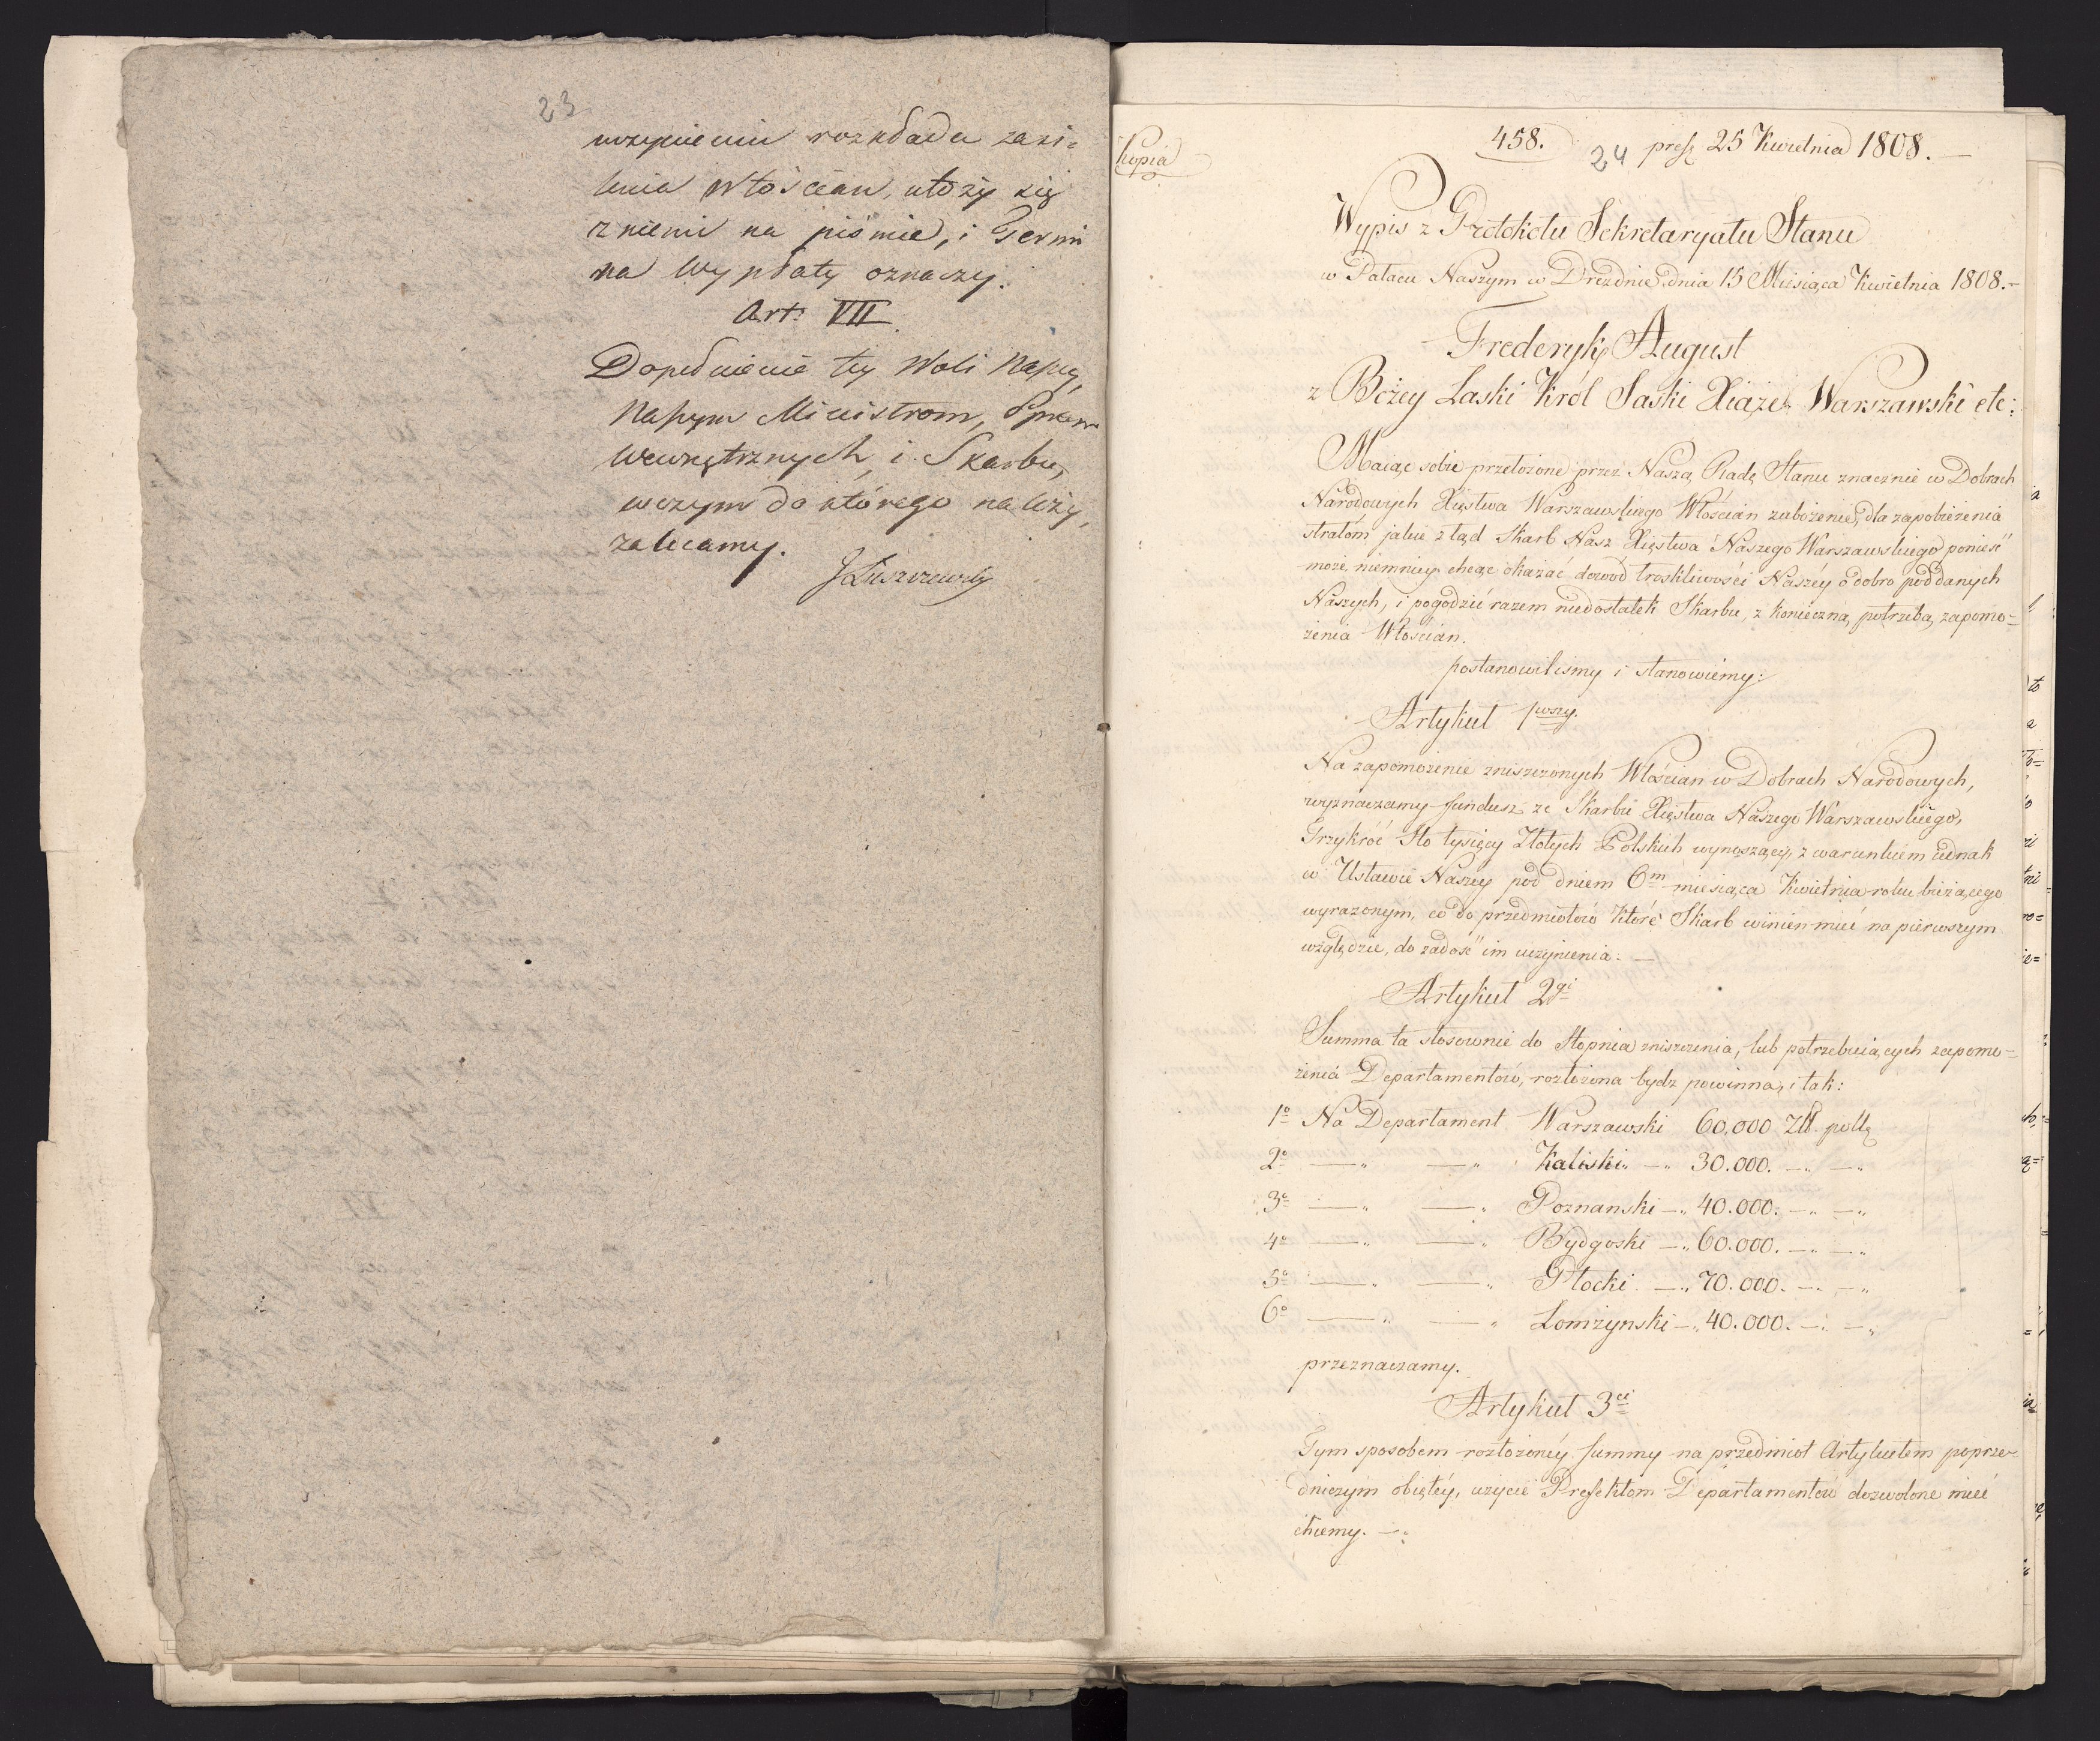 23
uczynieniu rozkładu zasi=
lenia Włościan, ułoży się
z niemi na piśmie, i Termi
na wypłaty oznaczy.
Art: VII
Dopełnienie tey Woli Naszey,
Naszym Ministrom, Spraw
Wewnętrznych, i Skarbu,
w czym do którego należy,
zalecamy.
JŁuszczewski
Kopia
458.
24 pres: 25 Kwietnia 1808. —
Wypis z Protokołu Sekretaryatu Stanu
w Pałacu Naszym w Dreznie dnia 15 Miesiąca Kwietnia 1808. —
Frederyk August
z Bożey Łaski Król Saski Xiąże Warszawski etc:
Maiąc sobie przełożone przez Naszą Radę Stanu znacznie w Dobrach
Narodowych Xięstwa Warszawskiego Włościan zubożenie, dla zapobieżenia
stratom jakie ztąd Skarb Nasz Xięstwa Naszego Warszawskiego ponieść
może, niemniey chcąc okazać dowód troskliwości Naszéy o dobro poddanych
Naszych, i pogodzić razem niedostatek Skarbu, z konieczną potrzebą zapomo=
żenia Włościan.
postanowiliśmy i stanowiemy:
Artykuł 1wszy.
Na zapomożenie zniszczonych Włościan w Dobrach Narodowych,
wyznaczamy fundusz ze Skarbu Xięstwa Naszego Warszawskiego,
Trzykróć Sto tysięcy Złotych Polskich wynoszący, z warunkiem iednak
w Ustawie Naszey pod dniem 6m miesiąca Kwietnia roku bieżącego
wyrażonym, co do przedmiotów które Skarb winien mieć na pierwszym
względzie, do zadość im uczynienia. —
Artykuł 2gi
Summa ta stosownie do Stopnia zniszczenia, lub potrzebuiących zapomo=
żenia Departamentów, rozłożona bydz powinna, i tak:
1o Na Departament Warszawski 60,000 Zł. pols
2o — „ — „ Kaliski — „ 30.000. — „ — „
3o — „ — „ Poznanski — „ 40.000. — „ — „
4o — „ — „ Bydgoski — „ 60.000. — „ — „
5o — „ — „ Płocki — „ 70.000. — „ — „
6o — „ — „ Łomżynski — „ 40.000. — „ — „
przeznaczamy.
Artykuł 3ci
Tym sposobem rozłożonéy Summy na przedmiot Artykułem poprze=
dniczym obiętéy, użycie Prefektom Departamentów dozwolone mieć
chcemy. —